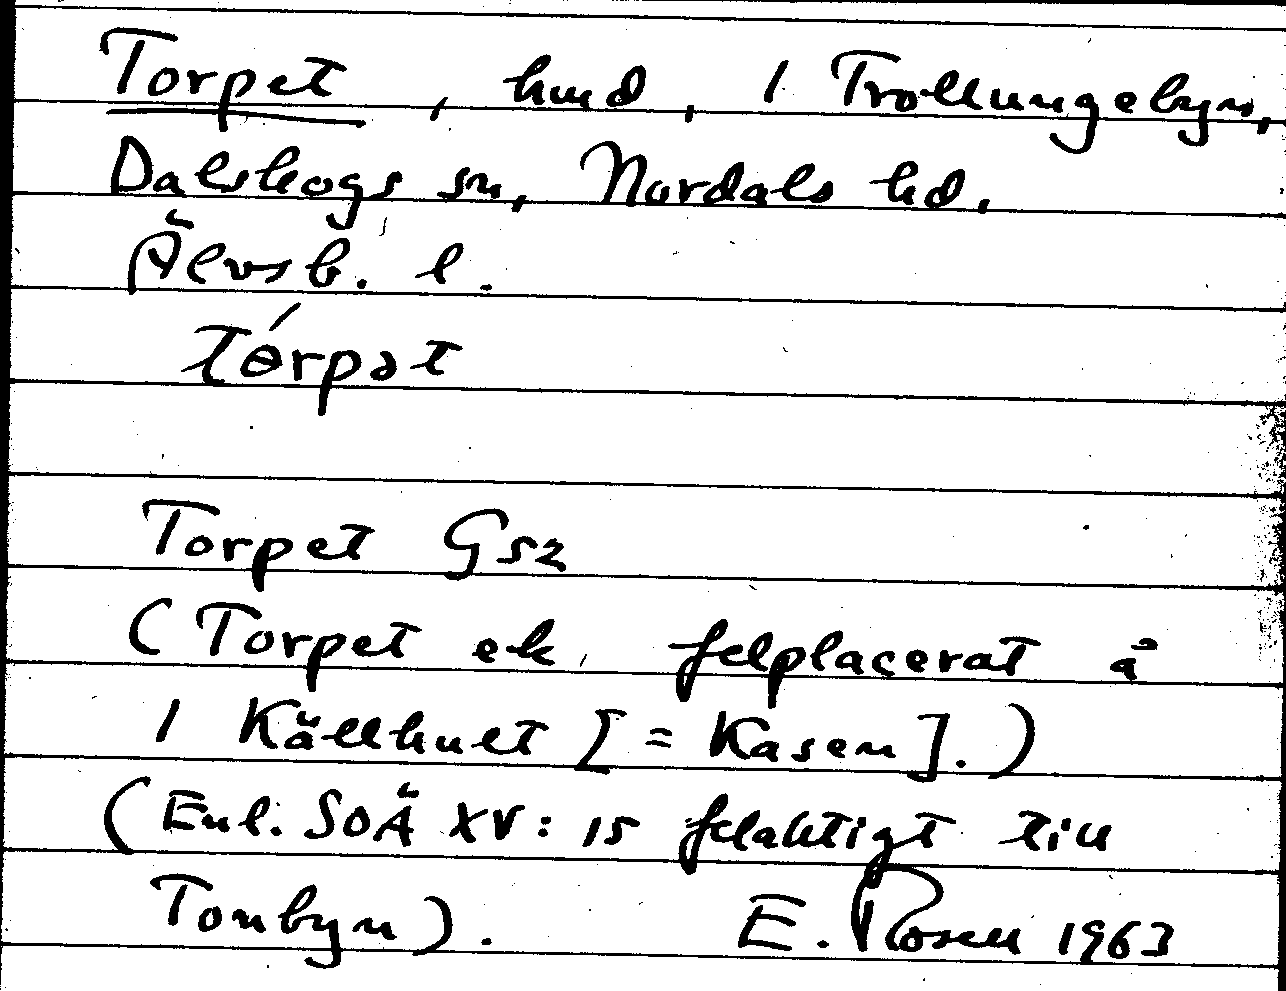 Torpet, hmd, 1 Trollungebyn,
Dalskogs sn, Nordals hd.
Älvsb. l.
tɵ́rpət
Torpet Gsz
(Torpet ek. felplacerat å
1 Källhult [= Kasen].)
(Enl. SOÄ XV: 15 felaktigt till
Tonbyn). E. Rosell 1963